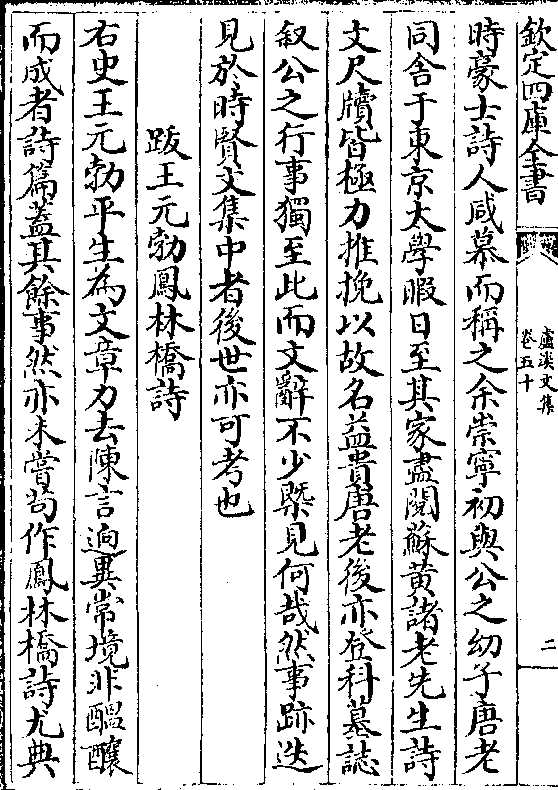 欽定四庫全書
盧溪文集
卷五十
二
時豪士詩人咸慕而稱之余崇寧初與公之幼子唐老
同舍于東京太學暇日至其家盡閱蘇黄諸老先生詩
文尺牘皆極力推挽以故名益貴唐老後亦登科墓誌
叙公之行事獨至此而文辭不少槩見何哉然事跡迭
見於時賢文集中者後世亦可考也
跋王元勃鳳林橋詩
右史王元勃平生為文章力去陳言逈異常境非醖釀
而成者詩篇葢其餘事然亦未嘗茍作鳳林橋詩尤典